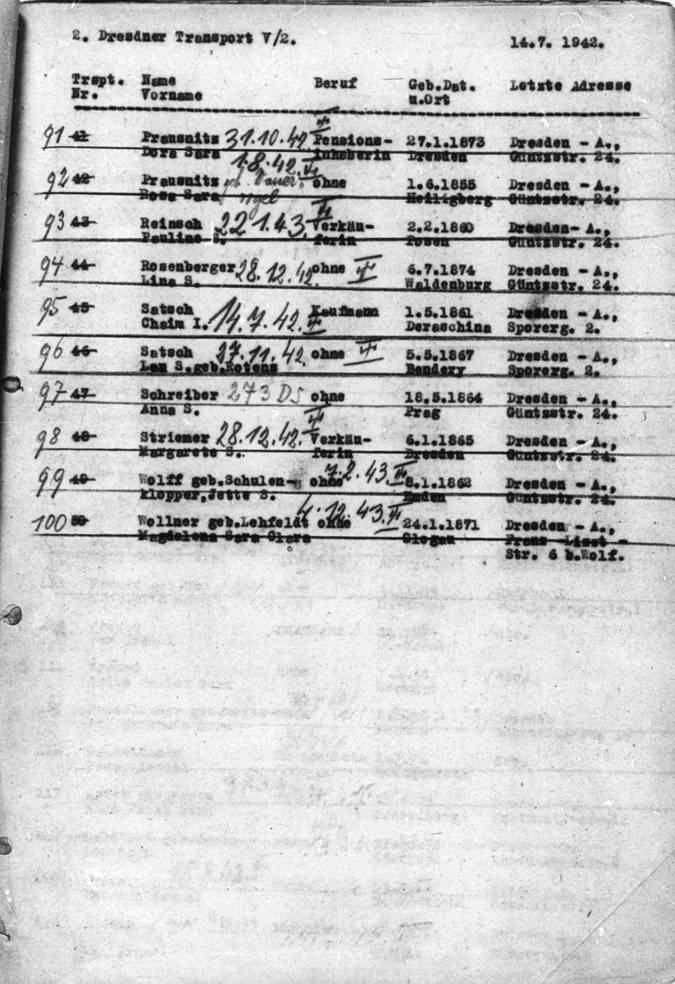 2. Dresdner Transport V/2. 14.7. 1942.
Trspt. Name Beruf Geb.Dat. Letzte Adresse
Nr. Vorname u.Ort
91 41 Prausnitz 31.10.42. Pensions- 27.1.1873 Dresden - A.,
Dora Sara inhaberin Dresden Güntzstr. 24.
1.8.42.
92 42 Prausnitz geb. ohne 1.6.1855 Dresden - A.,
Rosa Sara Heiligberg Güntzstr. 24.
93 43 Reinsch 22.1.43. Verkäu- 2.2.1860 Dresden- A.,
Pauline S. ferin Posen Güntzstr. 24.
94 44 Rosenberger 28.12.42. ohne 6.7.1874 Dresden - A.,
Lina S. Waldenburg Güntzstr. 24.
95 45 Satsch 14.7.42. Kaufmann 1.5.1861 Dresden - A.,
Chaim I. Deraschina Sporerg. 2.
96 46 Satsch 27.11.42. ohne 5.5.1867 Dresden - A.,
Lea S.geb.Rotens Bendery Sporerg. 2.
97 47 Schreiber 273 Ds ohne 18.5.1864 Dresden - A.,
Anna S. Prag Güntzstr. 24.
98 48 Striemer 28.12.42. Verkäu- 6.1.1865 Dresden - A.,
Margarete S. ferin Dresden Güntzstr. 24.
99 49 Wolff geb.Schulen- ohne 7.2.43. 8.1.1862 Dresden - A.,
klopper,Jette S. Emden Güntzstr. 24.
100 50 Wollner geb.Lehfeldt ohne 4.12.43. 24.1.1871 Dresden - A.,
Magdalena Sara Clara Glogau Franz -Liszt -
Str. 6 b.Wolf.